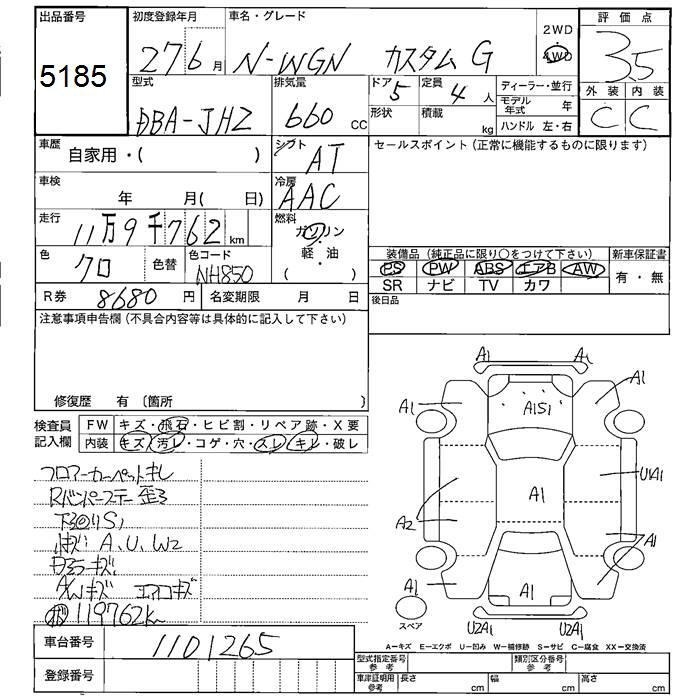 出品番号 初度登録年月 車名・グレード 2WD 評価点
5185 27 6月 N-WGN カスタム G 4WD 3.5
型式 排気量 ドア 定員 ディーラー・並行 外装 内装
DBA-JH2 660cc 5 4人 モデル年式 年 C C
形状 積載 kg ハンドル 左・右
車歴 自家用・( ) シフト AT セールスポイント(正常に機能するものに限ります)
車検 年 月( 日) 冷房 AAC
走行 11万9千762km 燃料 ガソリン・軽油 ( )
色 クロ 色替 色コード NH850
装備品(純正品に限り○をつけて下さい) 新車保証書
PS PW ABS エアB AW 有・無
SR ナビ TV カワ
R券 8680円 名変期限 月 日 後日品
注意事項申告欄(不具合内容等は具体的に記入して下さい)
修復歴 有〔箇所 〕
検査員記入欄 FW キズ・飛石・ヒビ割・リペア跡・X要
内装 キズ・汚レ・コゲ・穴・スレ・キレ・破レ
フロアーカーペットキレ
Rバンパーステー歪ミ
下廻りS1
小キズ A、U、W2
ミラーキズ
A/Wキズ エアロキズ
119762k
A1 A1
A1 A1S1 A1
U1A1
A1
A2 A1
A1 A1 A1
スペア U2A1 U2A1
A−キズ E−エクボ U−凹み W−補修跡 S−サビ C−腐食 XX−交換済
車台番号 1101265
登録番号
型式指定番号 参考 類別区分番号 参考
車庫証明用 参考 長さ cm 幅 cm 高さ cm